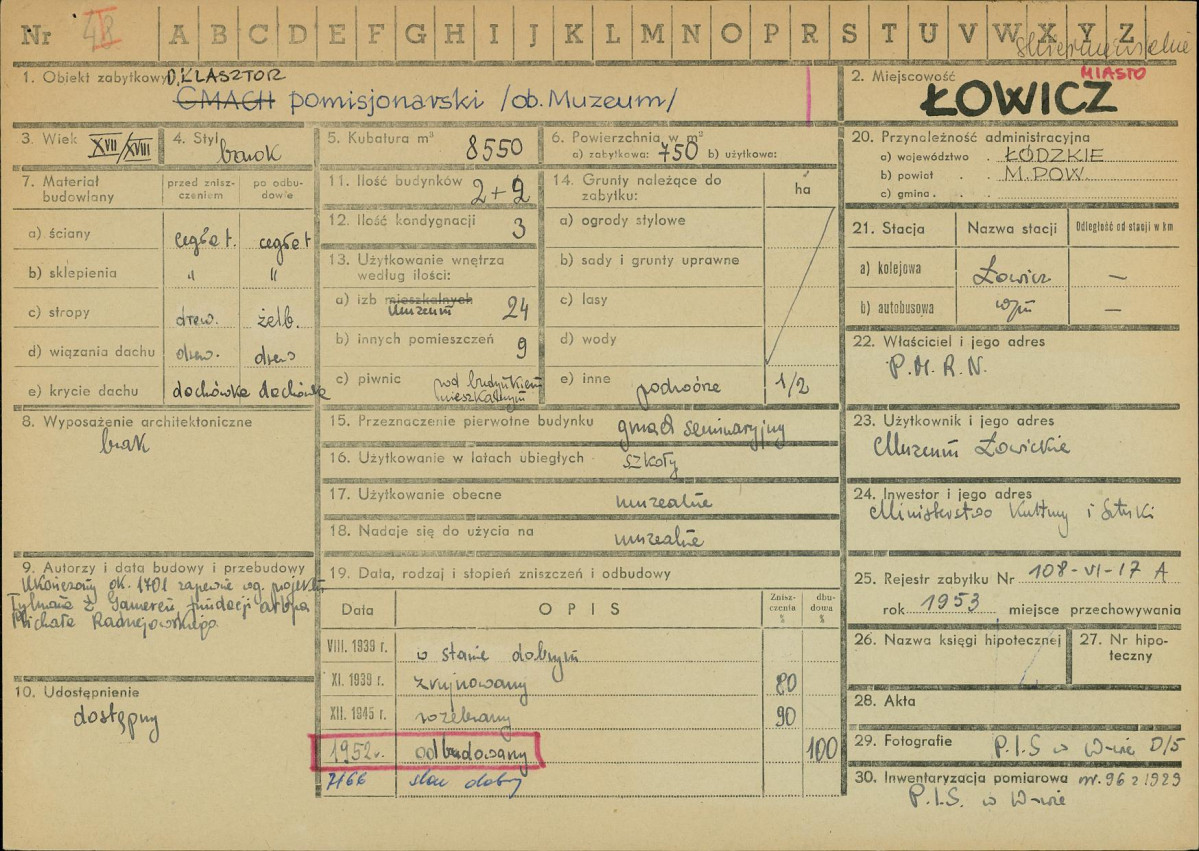 Nr A B C D E F G H I J K L M N O P R S T U V W X Y Z
skierniewickie
1. Obiekt zabytkowy D. KLASZTOR
GMACH pomisjonarski /ob. Muzeum/
2. Miejscowość MIASTO
ŁOWICZ
3. Wiek XVII/XVIII
4. Styl barok
5. Kubatura m³ 8550
6. Powierzchnia w m²
a) zabytkowa: 750 b) użytkowa:
20. Przynależność administracyjna
a) województwo . ŁÓDZKIE
b) powiat . . M. POW.
c) gmina .
7. Materiał budowlany
przed znisz-
czeniem
po odbu-
dowie
a) ściany cegła t. cegła t
b) sklepienia " "
c) stropy drew. żelb.
d) wiązania dachu drew. drew
e) krycie dachu dachówka dachówka
11. Ilość budynków 2+2
12. Ilość kondygnacji 3
13. Użytkowanie wnętrza
według ilości:
a) izb mieszkalnych 24
Muzeum
b) innych pomieszczeń 9
c) piwnic pod budynkiem
mieszkalnym
14. Grunty należące do
zabytku: ha
a) ogrody stylowe
b) sady i grunty uprawne
c) lasy
d) wody
e) inne podwórze 1/2
21. Stacja Nazwa stacji Odległość od stacji w km
a) kolejowa Łowicz —
b) autobusowa —
22. Właściciel i jego adres
P.M.R.N.
8. Wyposażenie architektoniczne
brak
15. Przeznaczenie pierwotne budynku gmach seminaryjny
16. Użytkowanie w latach ubiegłych szkoły
17. Użytkowanie obecne muzealne
18. Nadaje się do użycia na muzealne
23. Użytkownik i jego adres
Muzeum Łowickie
24. Inwestor i jego adres
Ministerstwo Kultury i Sztuki
9. Autorzy i data budowy i przebudowy
Ukończony ok. 1701 zapewne wg. projektu
Tylmana z Gameren, fundacji arbpa
Michała Radziejowskiego
10. Udostępnienie
dostępny
19. Data, rodzaj i stopień zniszczeń i odbudowy
Data OPIS Znisz-
czenia
% dbu-
dowa
%
VIII. 1939 r. w stanie dobrym
XI. 1939 r. zrujnowany 80
XII. 1945 r. rozebrany 90
1952 r. odbudowany 100
7166 stan dobry
25. Rejestr zabytku Nr 108-VI-17 A
rok 1953 miejsce przechowywania
26. Nazwa księgi hipotecznej
27. Nr hipo-
teczny
28. Akta
29. Fotografie P.I.S w W-wie D/5
30. Inwentaryzacja pomiarowa nr. 96 z 1929
P.I.S. w W-wie